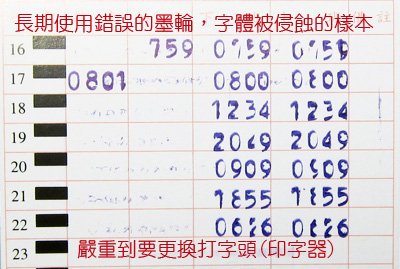 長期使用錯誤的墨輪，字體被侵蝕的樣本
註
16 759 0759 0759
17 0801 0800 0800
18 1234 1234
19 2049 2049
20 0909 0909
21
22
23
嚴重到要更換打字頭(印字器)